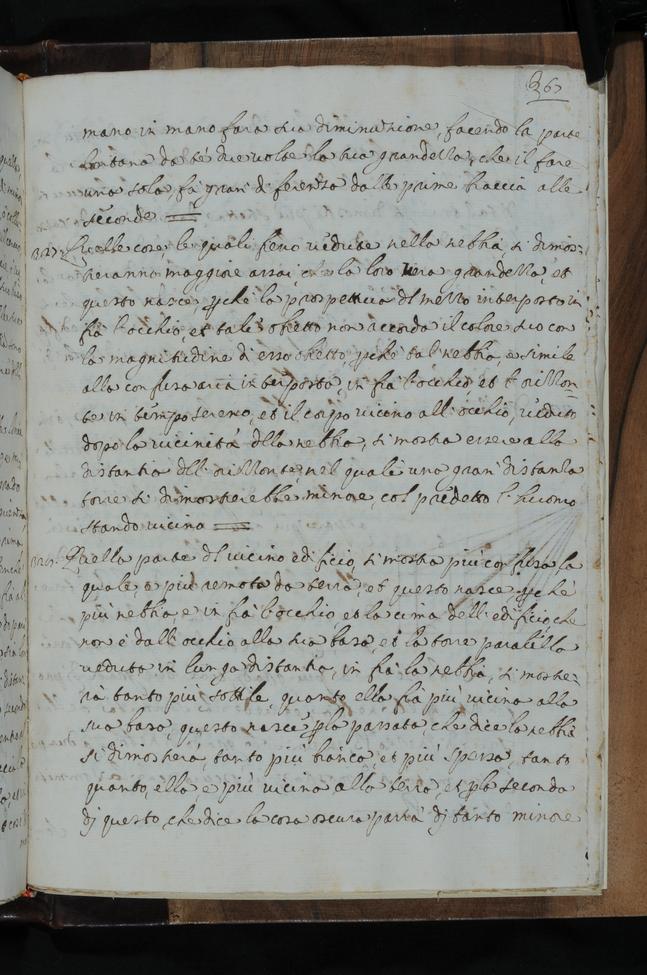 367
mano in mano fara sua diminutione, facendo la parte
lontana da se due volte la sua grandezza, che il fare
una sola fa gran diferenza dalle prime braccia alle
seconde
327. Quelle cose, le quali sieno vedute nella nebbia, si dimos:
teranno maggiore assai, che la loro vera grandezza, et
questo nasce, pche la prospettiva dl mezzo interposto in
fra l'occhio, et tale obietto non acorda il colore suo con
la magnitudine di esso obietto, pche tal nebbia, e simile
alla confusa aria interposta, in fra l'occhio, et l'orizon=
te in tempo sereno, et il corpo vicino all'occhio, veduto
dopo la vicinità della nebbia, si mostra essere alla
distantia dell'orizonte, nel quale una gran distanza
torre si dimosterebbe minore, col predetto l'huomo
stando vicino
328. Quella parte dl vicino edificio, si mostra più confusa, la
quale, e più remota da terra, et questo nasce pche
più nebbia, e in fra l'occhio et la cima dell'edificio, che
non è dall'occhio alla sua basa, et la torre paralella
veduta in lunga distantia, in fra la nebbia, si moste:
rà tanto più sottile, quanto ella fia più vicina alla
sua basa, questo nasce pla passata, che dice la nebbia
si dimosterà, tanto più bianca, et più spessa, tanto
quanto, ella e più vicina alla terra et pla seconda
dj questo, che dice la cosa oscura parrà dj tanto minore